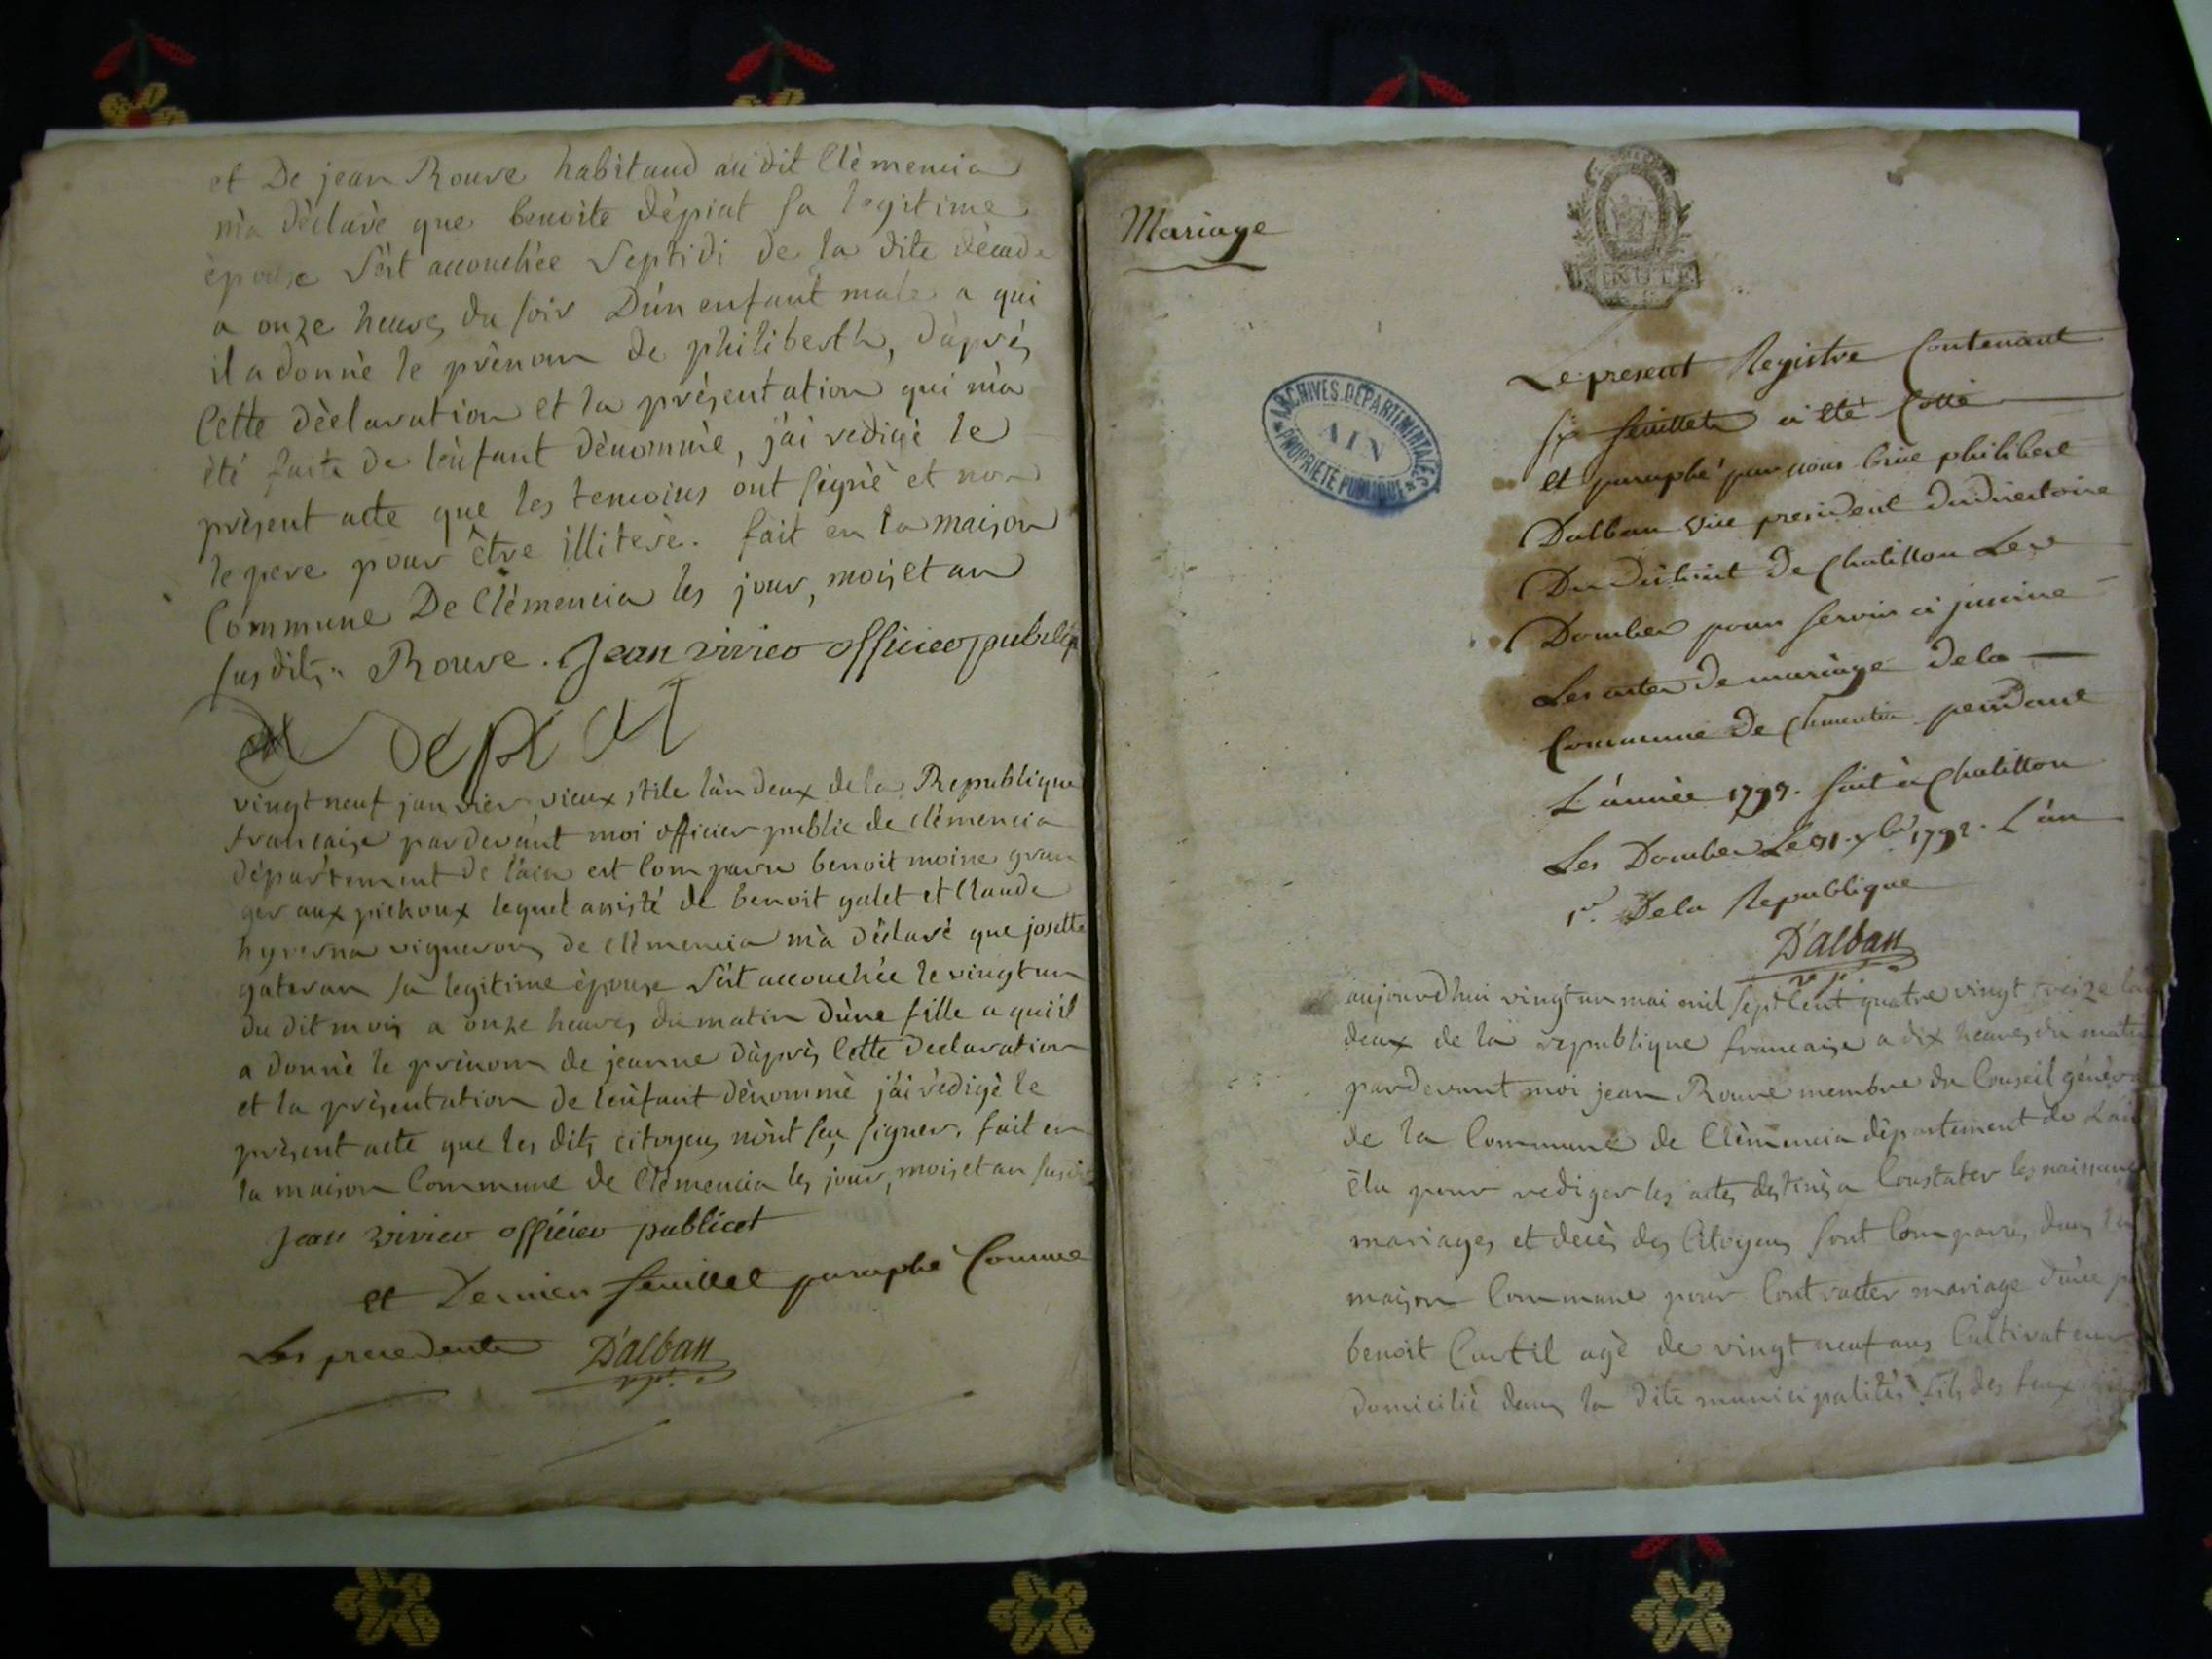 et De jean Rouve habitand au dit Clèmencia
m'a dèclarè que benoite dèpiat sa legitime
èpouse s'est accouchèe septidi de la dite dècade
a onze heures du soir D'un enfant male a qui
il a donnè le prènom de philiberth, d'après
Cette dèclaration et la prèsentation qui m'a
ètè faite de l'enfant dènommè, j'ai redigè le
prèsent acte que les temoins ont signè et non
le pere pour être illiterè. fait en la maison
Commune De Clèmencia les jour, mois et an
susdits. Rouve. Jean vivier officier public
depiat
vingt neuf janvier vieux stile l'an deux de la Republique
francaise pardevant moi officier public de clèmencia
dèpartement de l'ain est Comparu benoit moine gran
ger aux pichoux lequel assistè de benoit galet et Claude
hyvesna vigneron de clèmencia m'a dèclarè que josette
gateran sa legitime èpouse s'est accouchèe le vingt un
du dit mois a onze heures du matin d'une fille a qui il
a donnè le prènom de jeanne d'après Cette declaration
et la prèsentation de l'enfant dènommè j'ai rèdigè le
prèsent acte que les dits citoyens n'ont seu signer. fait en
la maison Commune de Clèmencia les jour, mois et an susdit
Jean vivier officier public
et Dernier feuillet paraphé Comme
Les precedents D'alban
Mariage
MINUTE
ARCHIVES DÉPARTEMENTALES
AIN
PROPRIÉTÉ PUBLIQUE
Le present Registre Contenant
six feuillets a été Cotté
et paraphé par nous philibert
Dalban vice president du directoire
Du District de Chatillon Les
Dombes pour servir a inscrire
Les actes de mariage de la
Commune de Clementia pendant
L'année 1793. fait à Chatillon
Les Dombes Le 31 xbre 1792. L'an
1er De la Republique
D'alban
aujourdhui vingt un mai mil sept Cent quatre vingt treize l'an
deux de la republique francaise a dix heures du matin
pardevant moi jean Rouve membre du Conseil gènèral
de la Commune de Clèmencia dèpartement de L'ain
èlu pour rediger les actes destinès a Constater les naissances
mariages et decès des Citoyens sont Comparus dans la
maison Commune pour Contracter mariage d'une
benoit Curtil agè de vingt neuf ans Cultivateur
domiciliè dans la dite municipalitès fils des feux